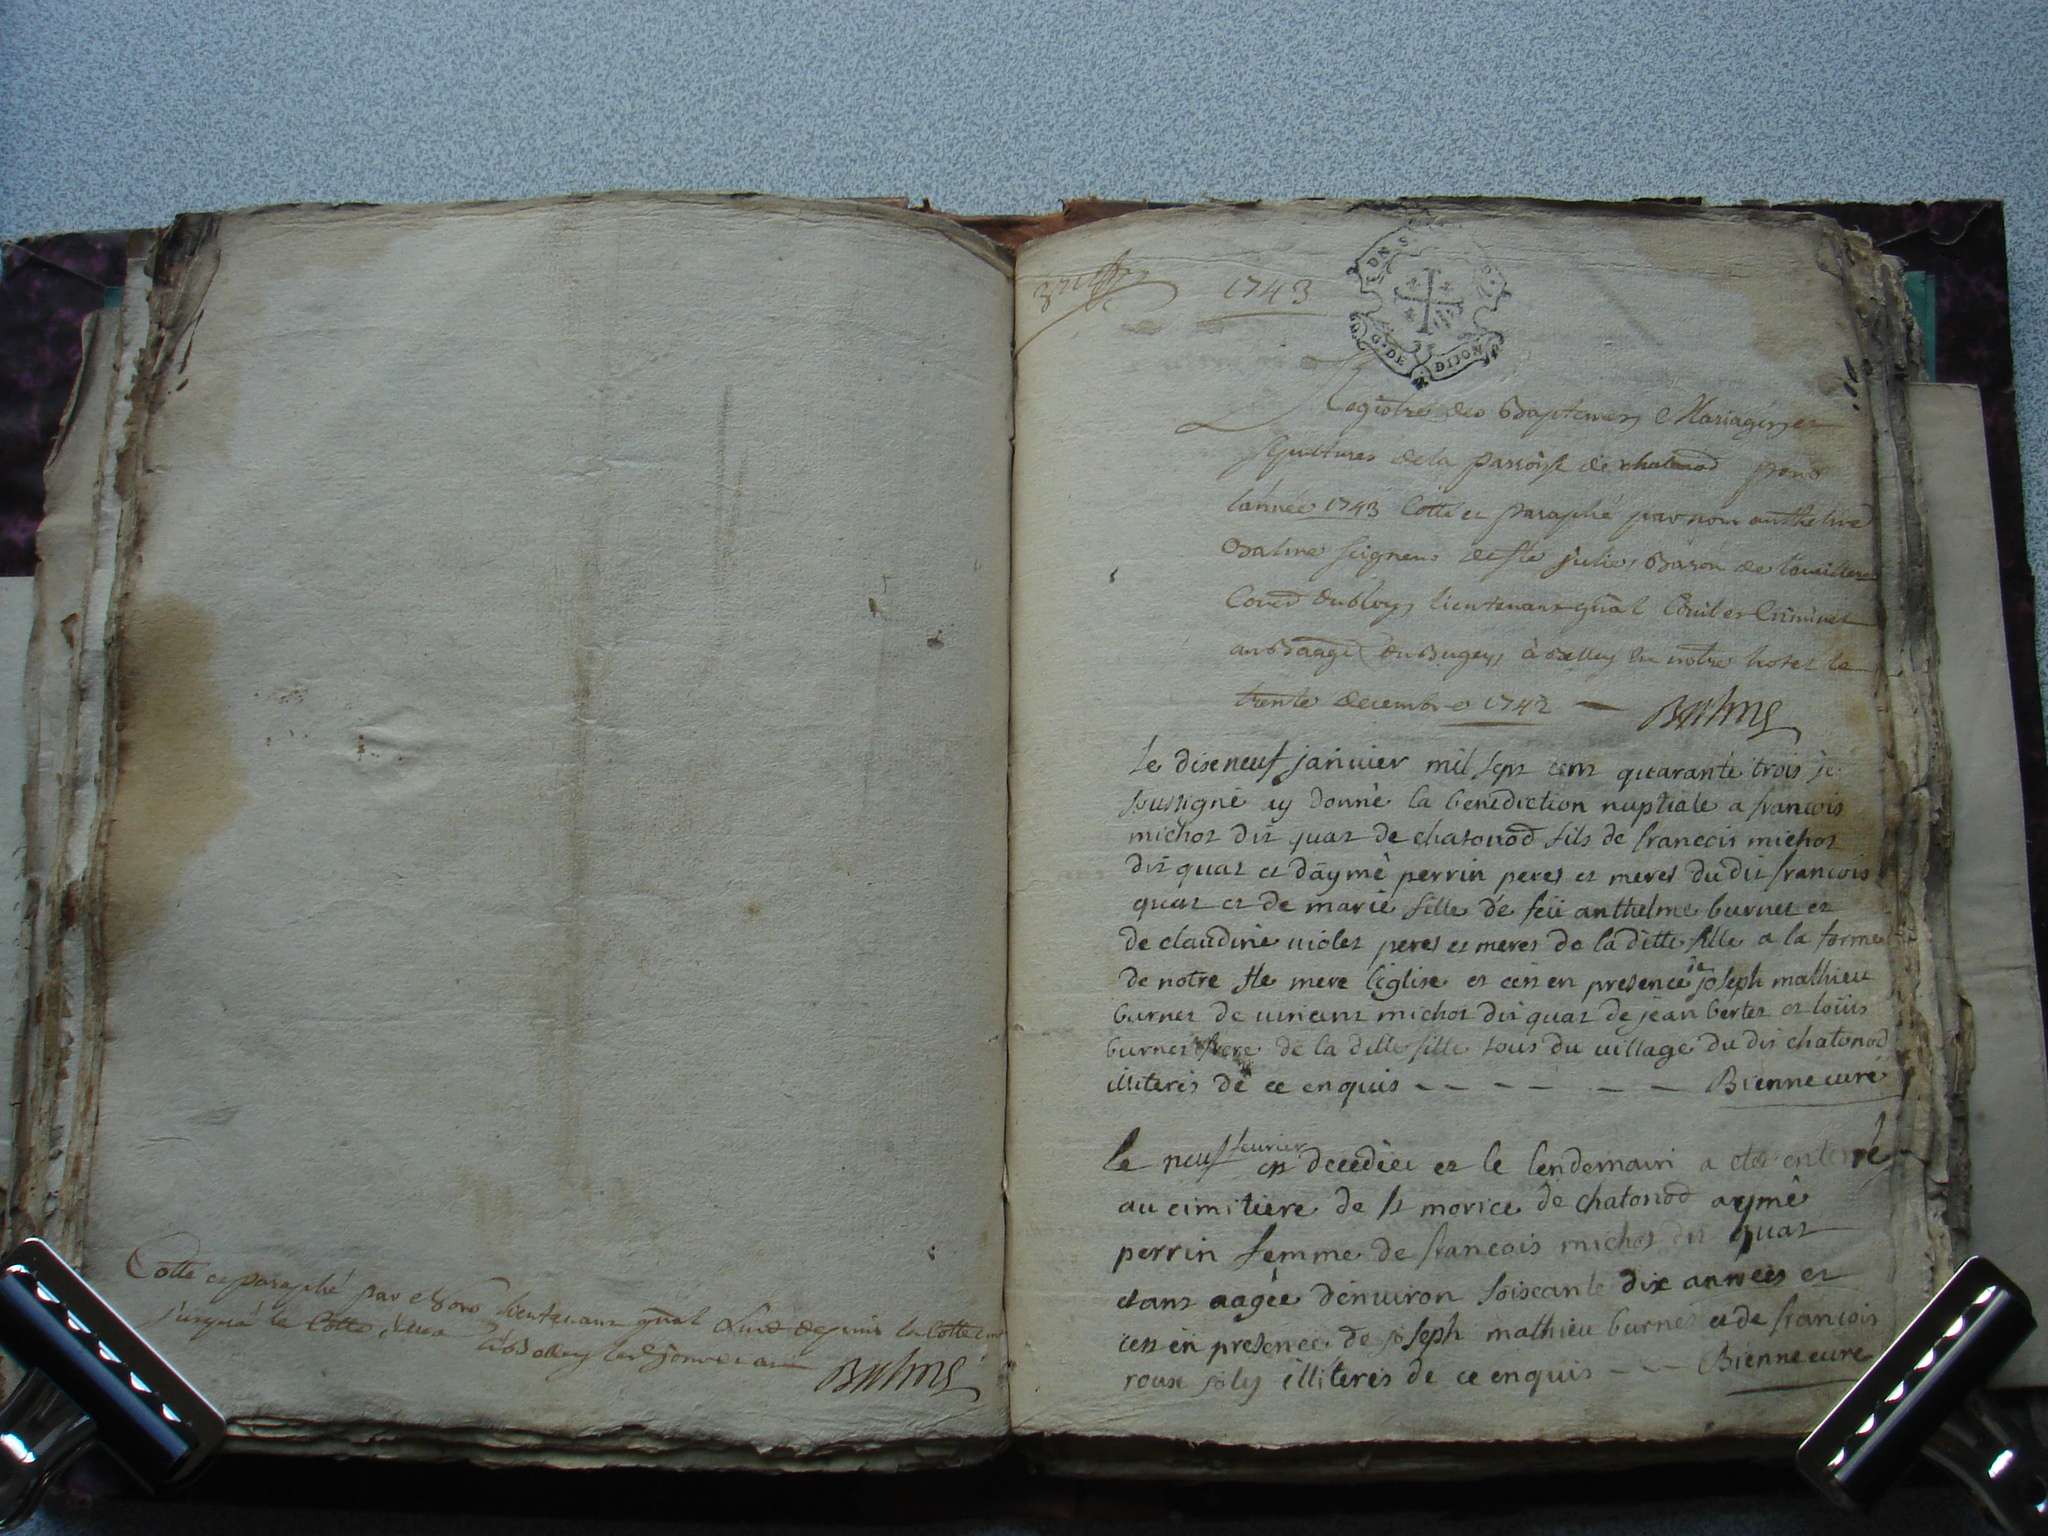 Cotté et paraphé par Nous Lieutenant gñal depuis la Cotte une
jusqu'à la Cotte
Balme
1743
G. DE DIJON
Registre des Baptemes Mariages et
sepultures de la parroisse de chatonod pour
l'année 1743 Cotté et paraphé par nous anthelme
Balme seigneur de Ste julie, Baron de
Lieutenant gñal Civil et Criminel
au Baage du Bugey, à Belley en notre hotel le
trente decembre 1742 — Balme
le diseneuf janvier mil sept cent quarante trois je
soussigné ay donné la benediction nuptiale a francois
michot dit quat de chatonod fils de francois michot
dit quat et d'aymé perrin peres et meres du dit francois
quat et de marie fille de feü anthelme burnet et
de claudine violet peres et meres de la ditte fille a la forme
de notre Ste mere l'eglise et cest en presence de joseph mathieu
burnet de vincent michot dit quat de jean bertet et loüis
burnet frere de la ditte fille tous du village du dit chatonod
illiterés de ce enquis — — — — — — Bienne curé
le neuf fevrier est decedèe et le lendemain a eté enterré
au cimitiere de st morice de chatonod aymé
perrin femme de francois michot dit quat
etant aagée d'environ soiscante dix années et
cest en presence de joseph mathieu burnet et de francois
roux joly illiterés de ce enquis — — Bienne curé